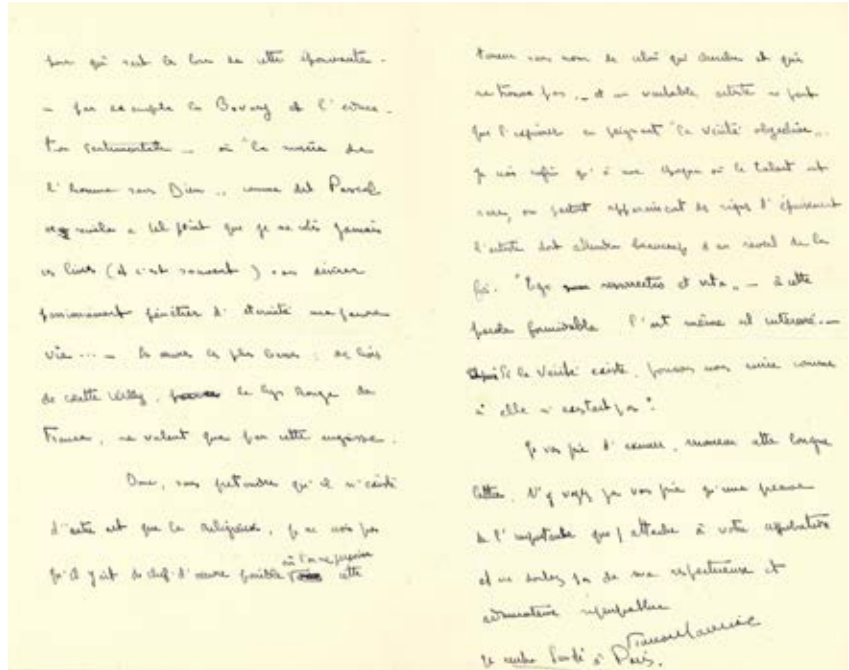 pour qui sent la       de cette épouvante -
- par exemple la Bovary et l'éduca-
tion sentimentale - où "la misère de
l'homme sans Dieu" comme dit Pascal
se révèle à tel point que je ne relis jamais
ces livres (et c'est souvent) sans désirer
passionnément pénétrer d'éternité ma pauvre
vie ... - les œuvres les plus       : de
de Colette Willy, le lys rouge de
France, ne valent que par cette angoisse.
Donc, sans prétendre qu'il n'existe
d'autre art que le religieux, je ne crois pas
qu'il y ait de chef-d'œuvre possible où l'on ne       cette
sans nom de celui qui cherche et qui
ne trouve pas. - et un véritable artiste ne peut
que l'exprimer en peignant "la vérité objective"..
Je crois enfin qu'à une époque où le talent est
rare, où partout apparaissent des signes d'épuisement
l'artiste doit attendre beaucoup d'un réveil de la
foi. "Ego sum resurrectio et vita" - à cette
parole formidable l'art même est intéressé. -
Si la Vérité existe, pouvons nous écrire comme
si elle n'existait pas?
Je vous prie d'excuser, monsieur cette longue
lettre. N'y voyez je vous prie qu'une preuve
de l'importance que j'attache à votre approbation
et ne doutez pas de ma respectueuse et
admirative sympathie
François Mauriac
Je rentre       à Paris.